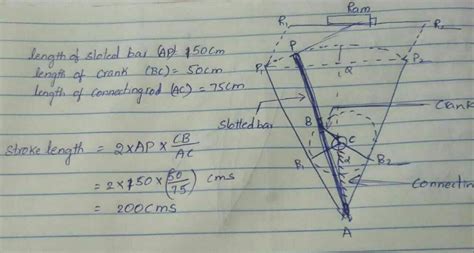 length of sloted bar (AP) 150cm
length of crank (BC) = 50cm
length of connecting rod (AC) = 75cm
stroke length = 2 x AP x CB/AC
= 2 x 150 x (50/75) cms
= 200cms
Ram
R1
R2
P
P1
Q
P2
Slotted bar
Crank
B
C
B1
B2
Connectin
A